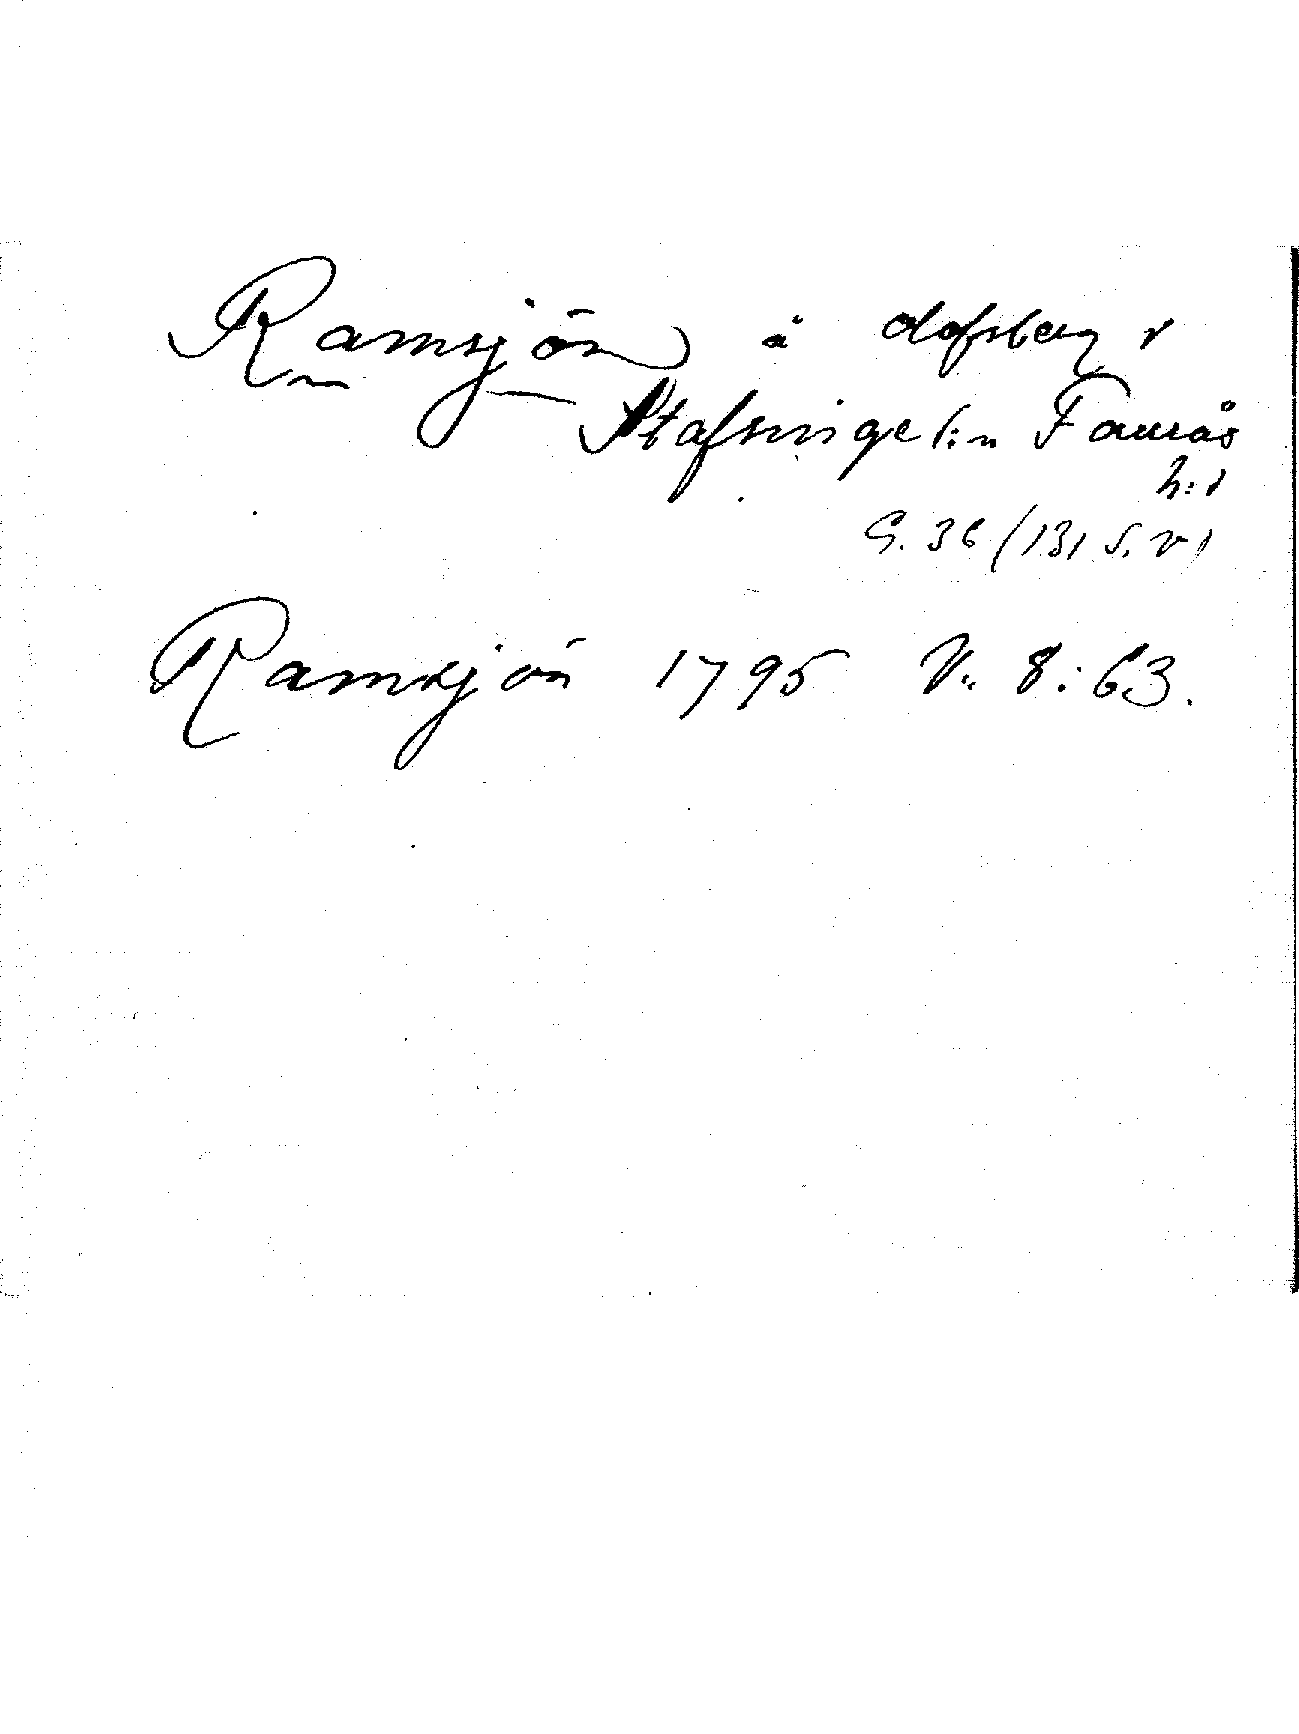 Ramsjön å Olofsberg i
Stafsinge s:n Faurås
h:d
G. 36 (131 S. v)
Ramsjön 1795 V. 8:63.